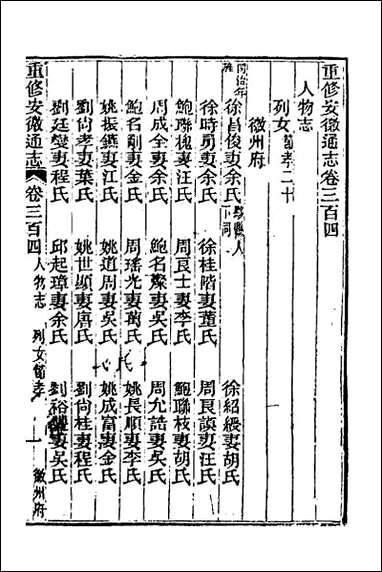 重修安徽通志卷三百四
人物志
列女 節孝二十
徽州府
徐昌俊妻余氏 徐紹緩妻胡氏
徐時勇妻余氏 徐桂階妻董氏 周良謨妻汪氏
鮑聯槐妻汪氏 周良士妻李氏 鮑聯枝妻胡氏
周成全妻余氏 鮑名爃妻吳氏 周允誥妻吳氏
鮑名創妻金氏 周瑤光妻萬氏 姚長順妻李氏
姚振鑣妻江氏 姚道周妻吳氏 姚成富妻金氏
劉尚孝妻葉氏 姚世顯妻唐氏 劉尚桂妻程氏
劉廷燮妻程氏 邱起璋妻余氏 劉裕 妻吳氏
重修安徽通志 卷三百四 人物志 列女節孝 一 徽州府